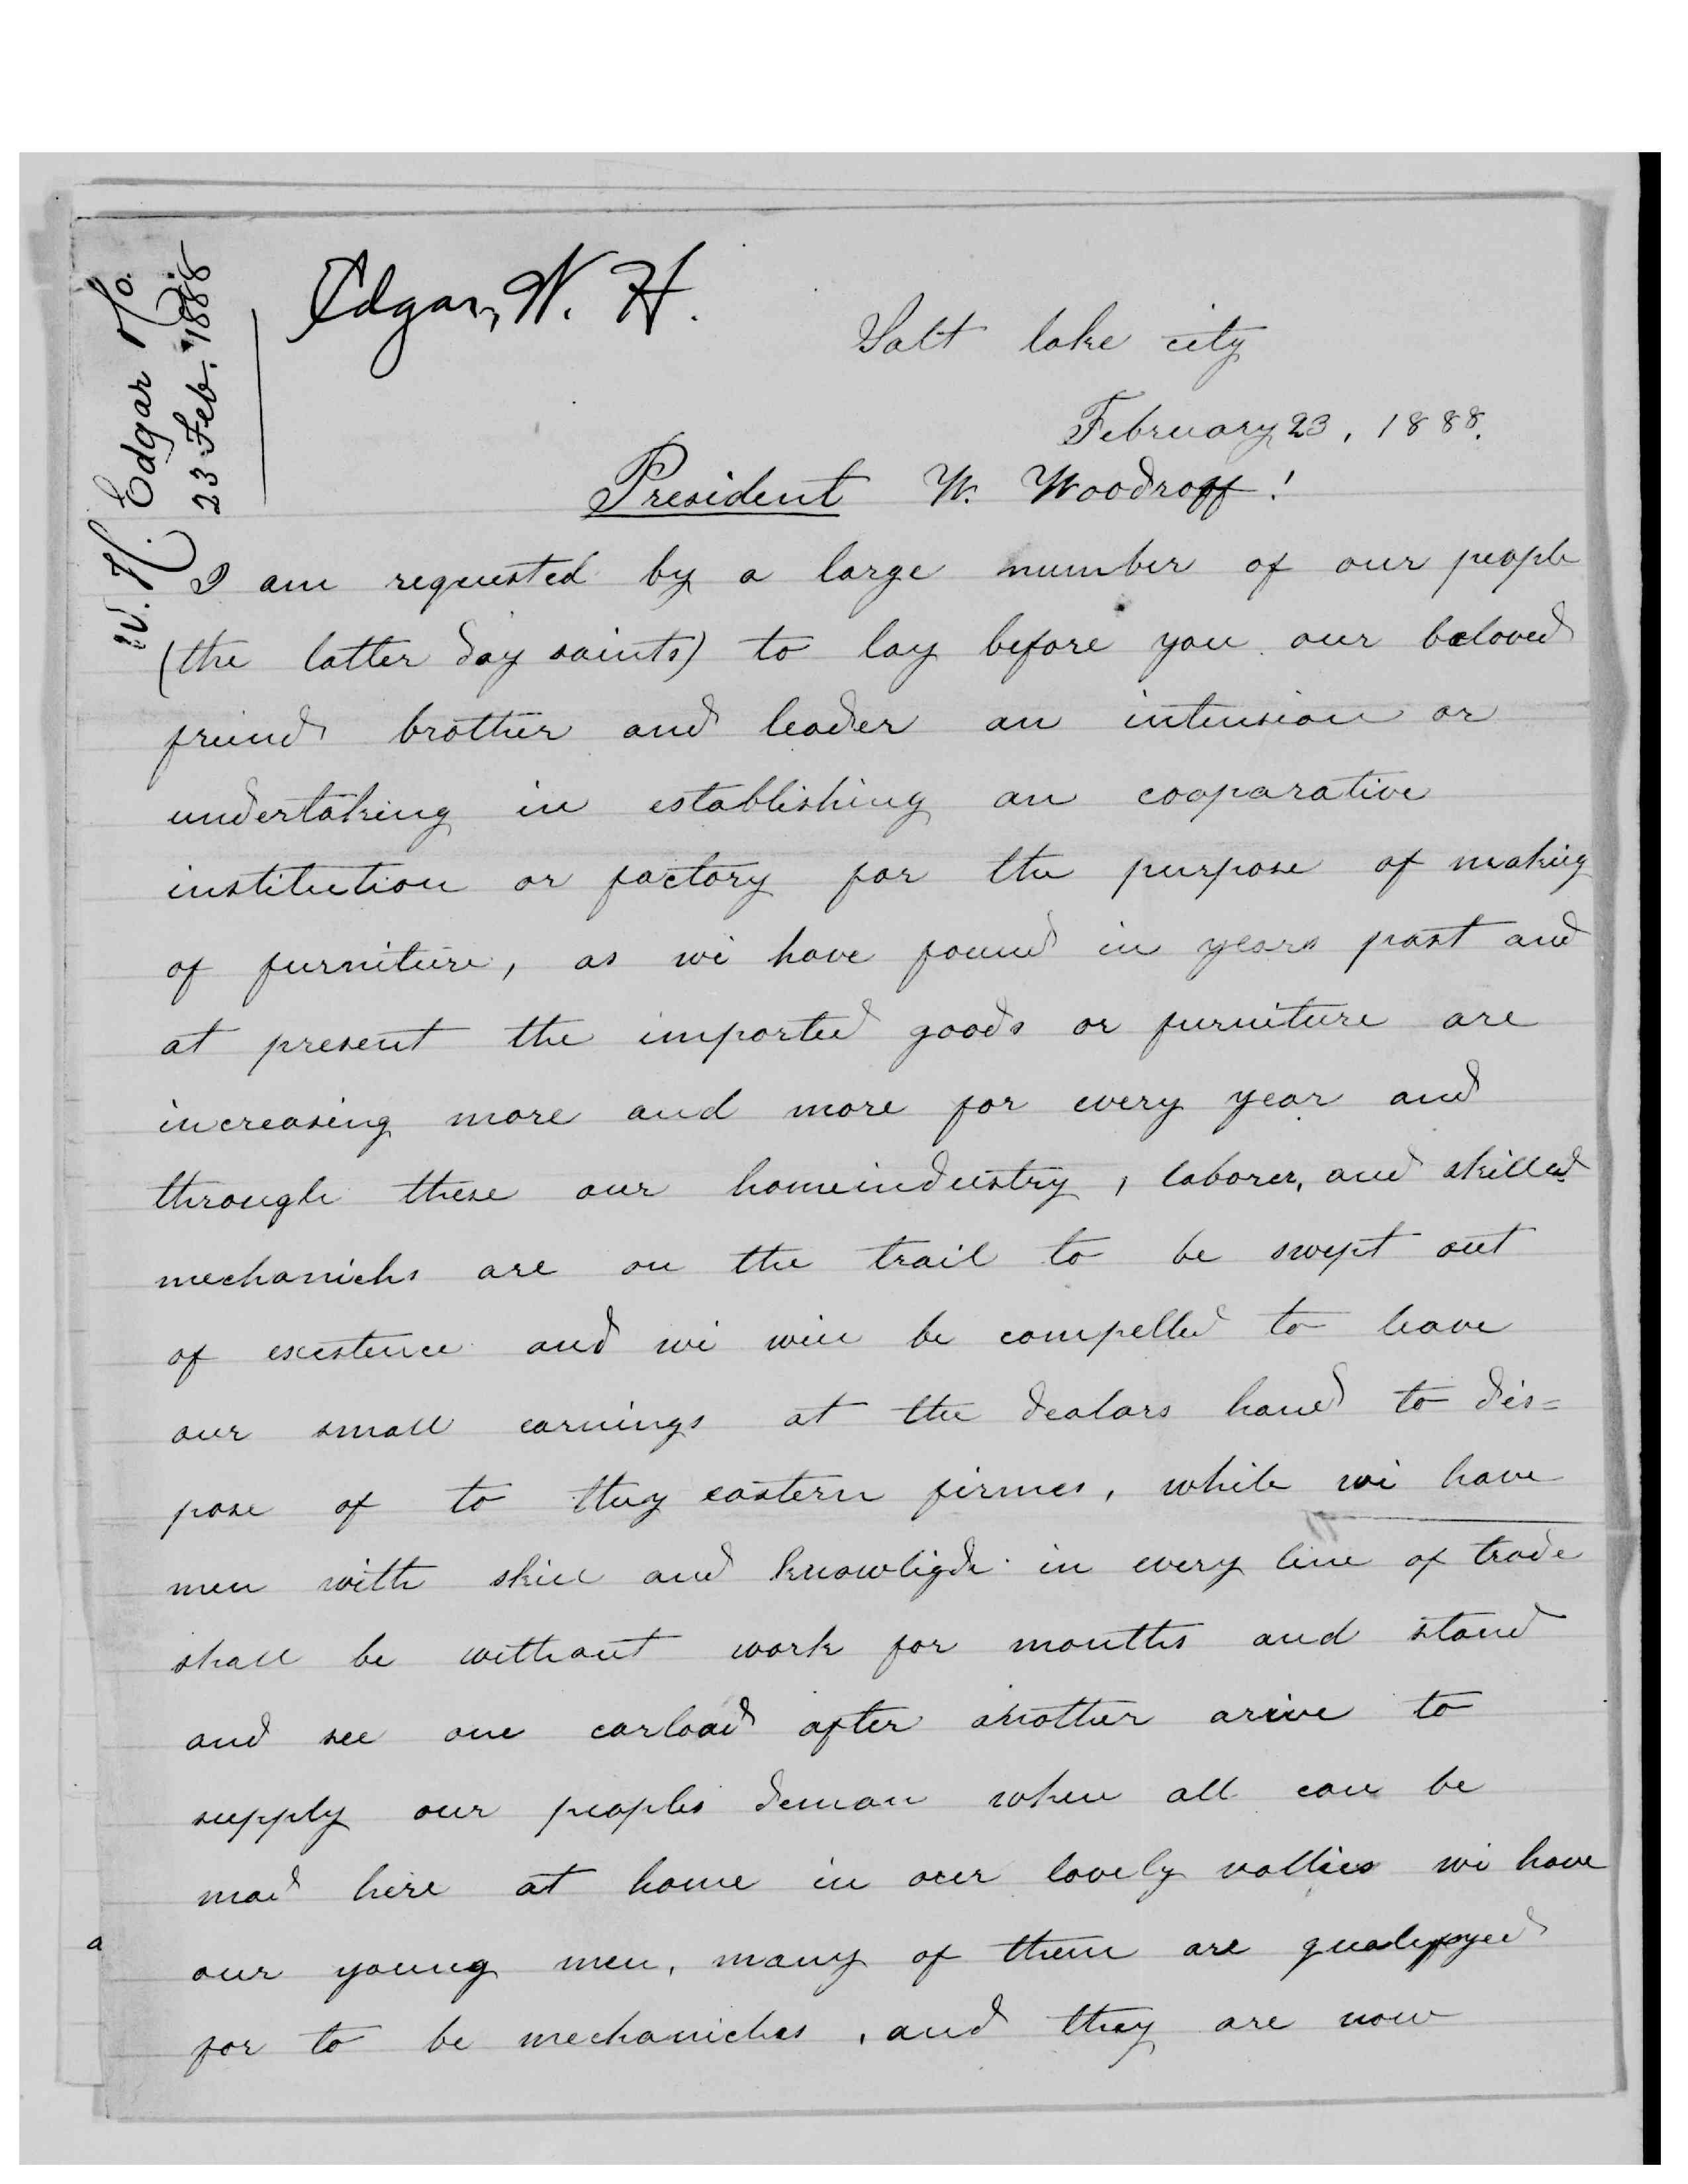 W. H. Edgar
23 Feb. 1888
Edgar, W. H.
Salt lake city
February 23, 1888.
President W. Woodroff!
I am requested by a large number of our people
(the latter day saints) to lay before you our beloved
friend brother and leader an intension or
undertaking in establishing an cooparative
institution or factory for the purpose of making
of furniture, as wi have found in years past and
at present the imported goods or furniture are
increasing more and more for every year and
through these our homeindustry, laborer, and skilled
mechanichs are on the trail to be swept out
of existence and wi will be compelled to leave
our small earnings at the dealars hand to dis=
pose of to they eastern firmes, while wi have
men with skill and knowligde in every line of trade
shall be without work for months and stand
and see one carload after another arive to
supply our peoples deman when all can be
mad here at home in our lovely vallies wi have
our young men, many of them are qualifyed
for to be mechaniches, and they are now
a